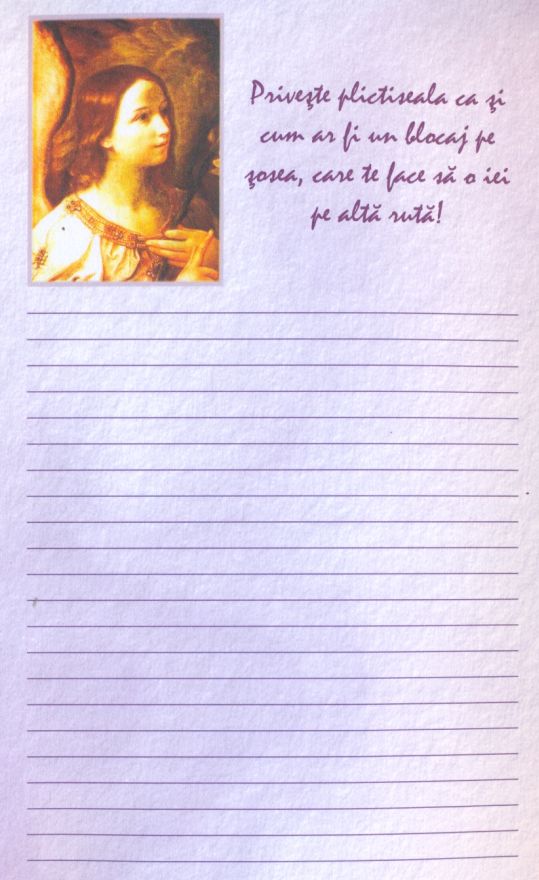 Priveşte plictiseala ca şi
cum ar fi un blocaj pe
şosea, care te face să o iei
pe altă rută!